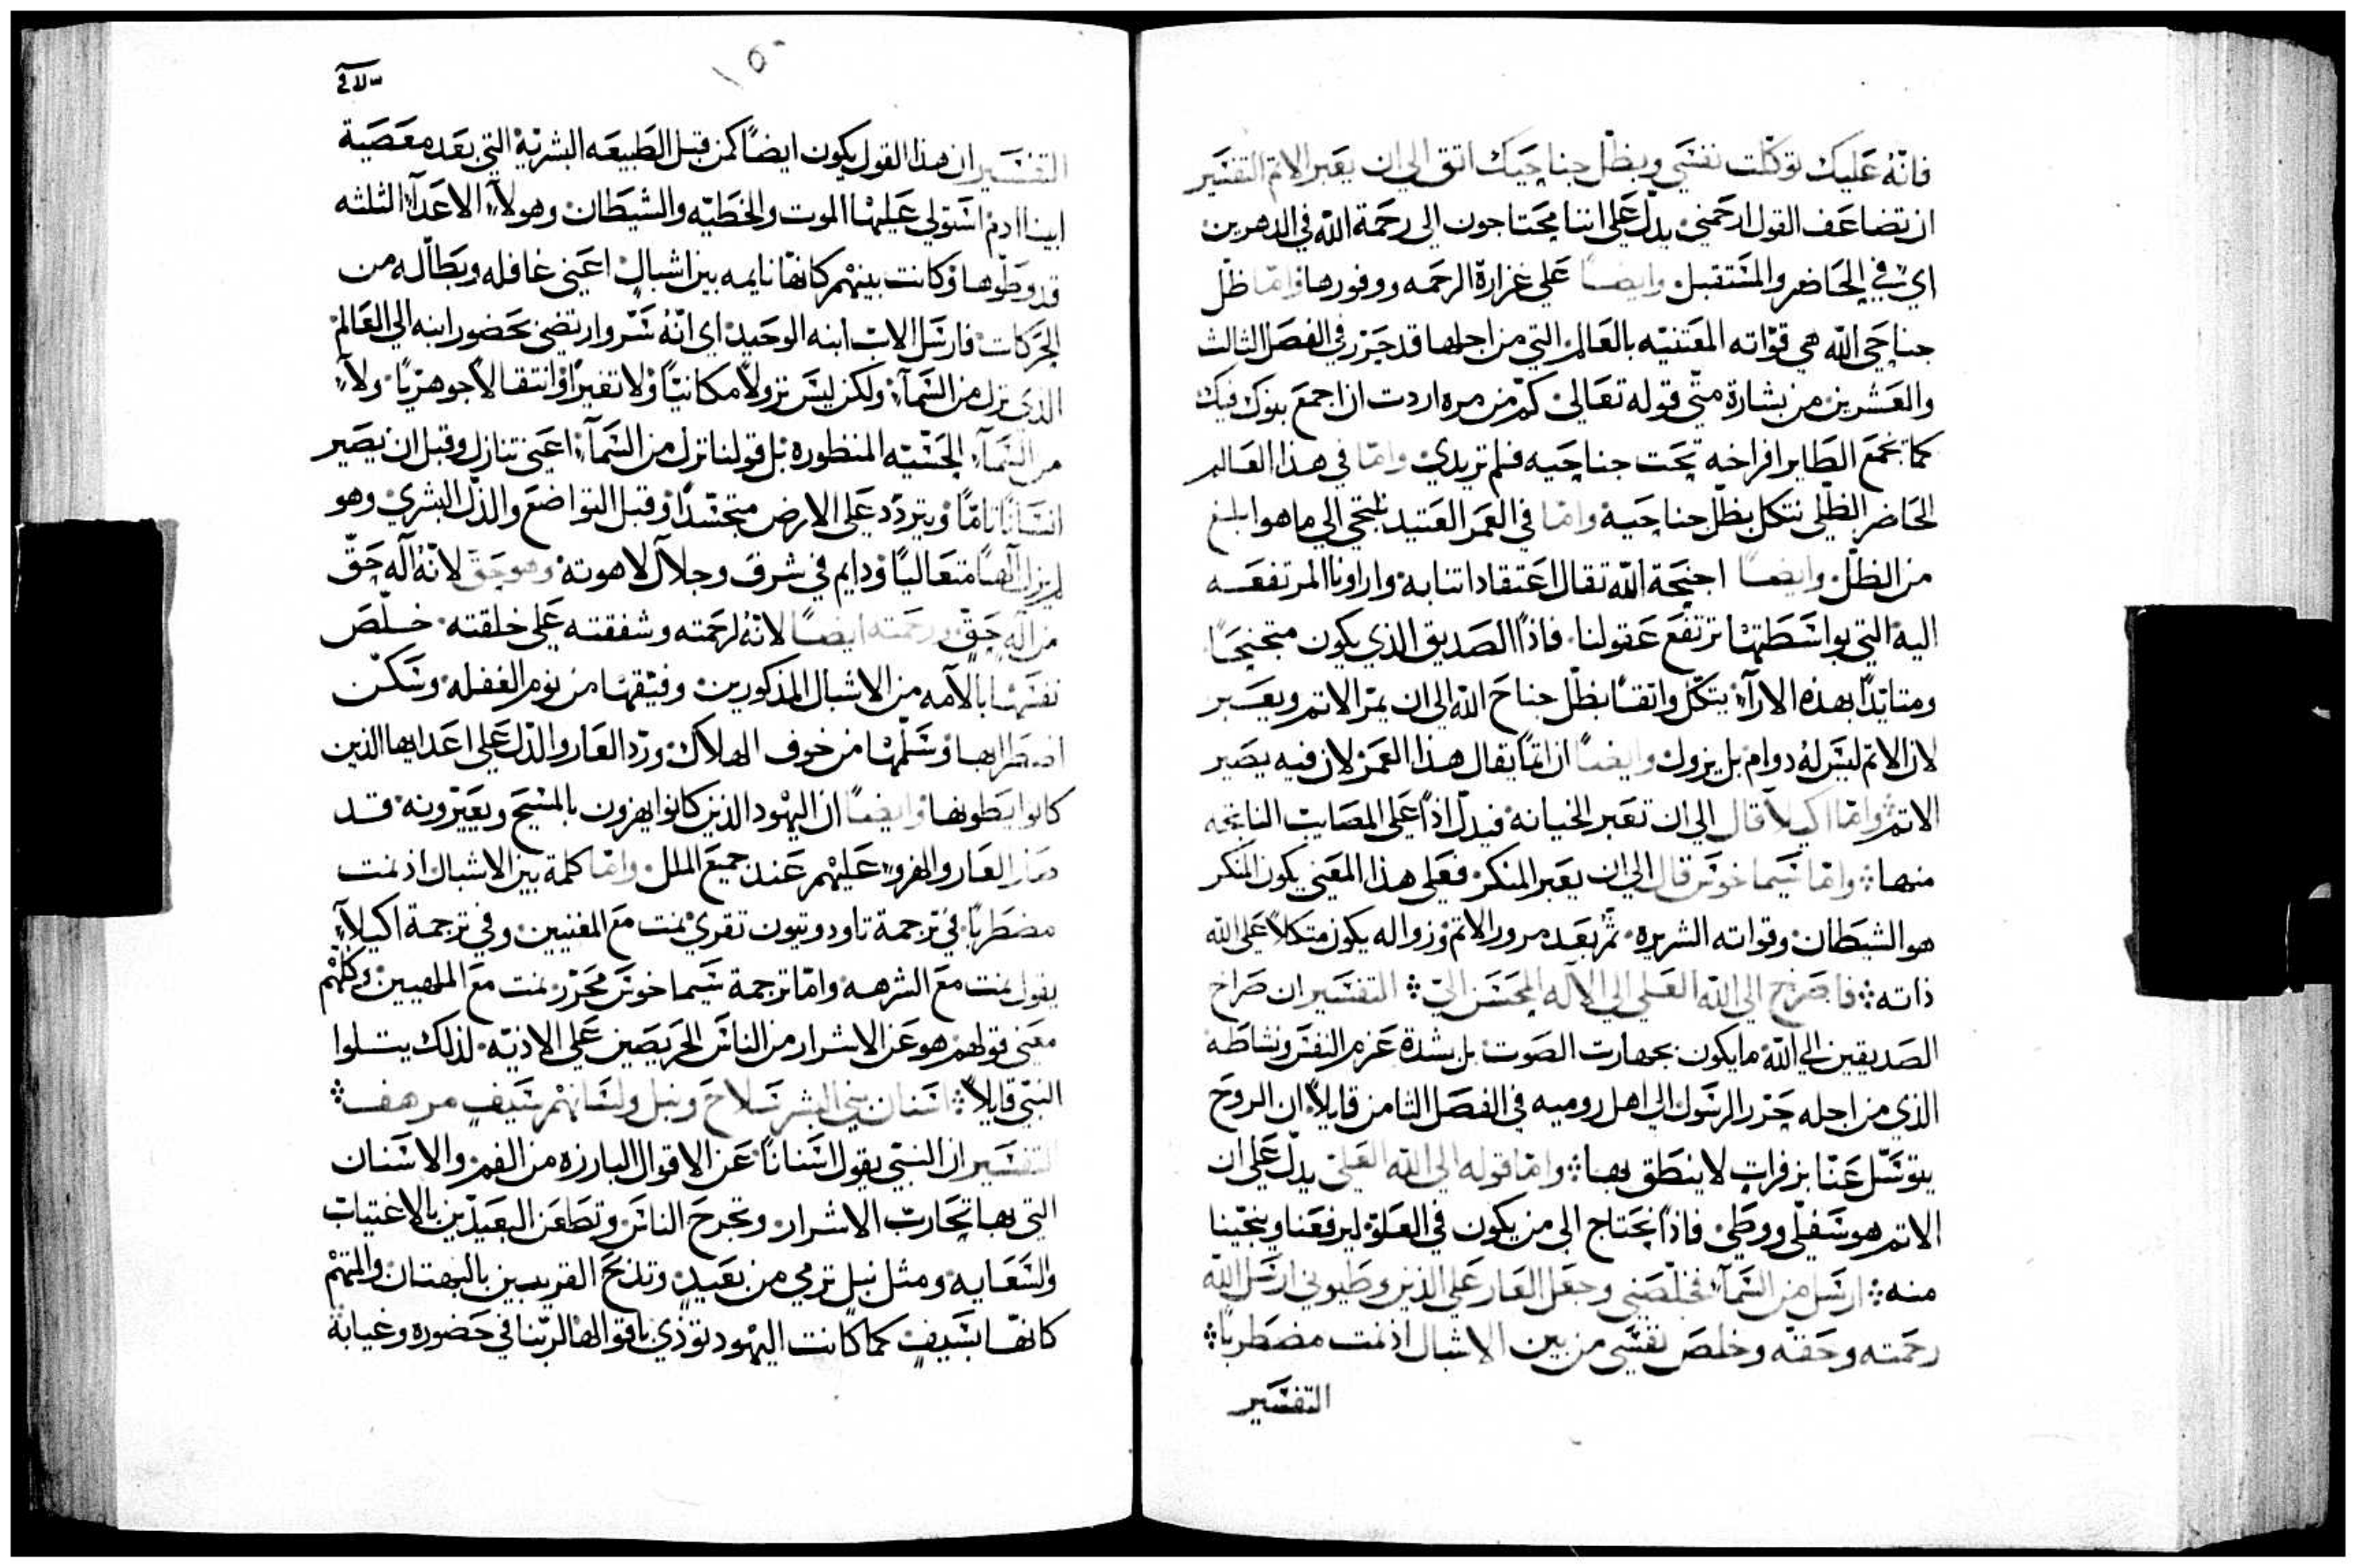 فانّهُ عَليك توكّلت نفسَي وبظلّ جناحَيك اتق الي ان يعَبر الاثم التفسَير
ان تضاعَف القول ارحَمني يدلّ عَلي اننا محَتاجون الي رحَمة اللّه في الدهرين
اي في الحَاضر والمسَتقبل وايضاً عَلي غزارة الرحَمه ووفورها وامّا ظلّ
جناحَي اللّه هي قوّاته المعَتنيّه بالعَالم التي من اجلها قد حَرّر في الفصَل الثالث
والعَشرين من بشارة متّي قوله تعَالي كم من مره اردت ان اجمعَ بنوك فيك
كما تجمعَ الطَاير افراخه تحَت جناحَيه فلم تريدي وامّا في هذا العَالم
الحَاضر الظلّي نتكل بظلّ جناحَيه وامّا في العَمر العَتيد نلتجي الي ما هو ابلغ
من الظلّ وايضاً اجنحَة اللّه تقال اعَتقاداتنا به وارآونا المرتفعَه
اليه التي بواسَطَتهَا ترتفعَ عَقولنا فاذاً الصَديق الذي يكون متجنحَاً
ومتايّداً بهذه الارآء يتكّل واثقاً بظلّ جناحَ اللّه الي ان يمرّ الاثم ويعَبر
لان الاثم ليسَ لهُ دوام بل يزول وايضاً ان اثماً يقال هذا العَمر لان فيه يصَير
الاثم وامّا اكيلا قال الي ان تعَبر الخيانه فيدلّ اذاً عَلي المصَايب الناتجه
منها وامّا سَيماخوسَ قال الي ان يعَبر المنكر فعَلي هذا المعَني يكون المنكر
هو الشيطَان وقواته الشريره ثمّ بعَد مرور الاثم وزواله يكون متكلاً عَلي اللّه
ذاته فاصَرخ الي اللّه العَلي الي الاله المحَسَن اليّ التفسَير ان صَراخ
الصَديقين الي اللّه ما يكون بجهارت الصَوت بل بشدة عَزم النفسَ ونشاطَه
الذي من اجله حَرّر الرسَول الي اهل روميه في الفصَل الثامن قايلاً ان الروحَ
يتوسَّل عَنّا بزفراتٍ لا ينطَق بها وامّا قوله الي اللّه العَلي يدلّ عَلي ان
الاثم هو سَفلّي ووطَي فاذاً نحَتاج الي من يكون في العَلوّ ليرفعَنا وينجّينا
منه ارسَل من السَمآء فخلّصَني وجعَل العَار عَلي الذين وطَيوني ارسَل اللّه
رحَمته وحَقّه وخلصَ نفسَي من بين الاشبال اذ نمت مضطَرباً
التفسَير
التفسَير ان هذا القول يكون ايضاً كمن قبل الطَبيعَه البشريّة التي بعَد معَصَية
ابينا ادم اسَتولي عَليهَا الموت والخطَيّه والشيطَان وهولآء الاعَدآء الثلثه
قد وطَّوها وكانت بينهم كانّها نايمه بين اشبالٍ اعَني غافله وبطَّاله من
الحَركات فارسَل الاب ابنه الوحَيد اي انّهُ سَرّ وارتضي بحَضور ابنه الي العَالم
الذي نزل من السَمآء ولكن ليسَ نزولاً مكانيّاً ولا تغيراً وانتقالاً جوهريّاً ولا
من السَمآء الحَسّيّه المنظوره بل قولنا نزل من السَمآء اعَني تنازل وقبل ان يصَير
انسَاناً تامّاً ويتردّد عَلي الارض متجسّداً وقبل التواضعَ والذلّ البشري وهو
لم يزل الهاً متعَالياً ودايم في شرف وجلال لاهوته وهو حَقّ لانّهُ اله حَقّ
من اله حَقّ ورحَمته ايضاً لانّهُ لرحَمته وشفقته عَلي خلقته خلّصَ
نفسَهَا بالآمه من الاشبال المذكورين وفيّقهَا من نوم الغفله وسَكّن
اضطَرابها وسَلّمهَا من خوف الهلاك وردّ العَار والذلّ عَلي اعَدايها الذين
كانوا يطَونها وايضاً ان اليهَود الذين كانوا يهزون بالمسَيحَ ويعَيّرونه قد
صَار العَار والهزو عَليهَم عَند جميعَ الملل وامّا كلمة بين الاشبال اذ نمت
مضطَرباً في ترجمة تاودوتيون تقري نمت معَ المغنيين وفي ترجمة اكيلآ
يقول نمت معَ الشرهه وامّا ترجمة سَيماخوسَ محَرّر نمت معَ الملهيين وكلّهم
معَني قولهم هو عَن الاشرار من الناسَ الحَريصَين عَلي الاذيّه لذلك يتسلوا
النبّي قايلاً اسَنان بني البشر سَلاحَ ونبل ولسَانهم سَيف مرهف
التفسَير ان النبّي يقول اسَناناً عَن الاقوال البارزه من الفم والاسَنان
التي بها تحَارب الاشرار وتجرحَ الناسَ وتطَعَن البعَيدّين بالاغتياب
والسَعَايه ومثل نبل ترمي من بعَيد وتذبحَ القريبين بالبهتان والتهَم
كانّها بسَيف كما كانت اليهَود توذي باقوالها لربّنا في حَضوره وغيابه